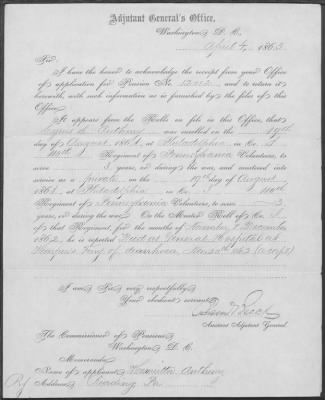 Adjutant General's Office,
Washington, D. C.
April 4, 1863.
Sir:
I have the honor to acknowledge the receipt from your Office
of application for Pension No. and to return it
herewith, with such information as is furnished by the files of this
Office.
It appears from the Rolls on file in this Office, that
was enrolled on the
day of August, 1861, at Philadelphia in Co.
Regiment of Pennsylvania Volunteers, to
serve 3 years, or during the war, and mustered into
service as a private on the day of August
1861, at Philadelphia in Co.
Regiment of Pennsylvania Volunteers, to serve 3
years, or during the war. On the Muster Roll of Co.
of that Regiment, for the months of November & December
1862, he is reported Died at General Hospital at
Ferry, of diarrhoea Nov 1862
I am, Sir, very respectfully,
Your obedient servant,
Assistant Adjutant General.
The Commissioner of Pensions
Washington, D. C.
Memoranda:
Name of applicant, Henrietta
Address, Reading Pa